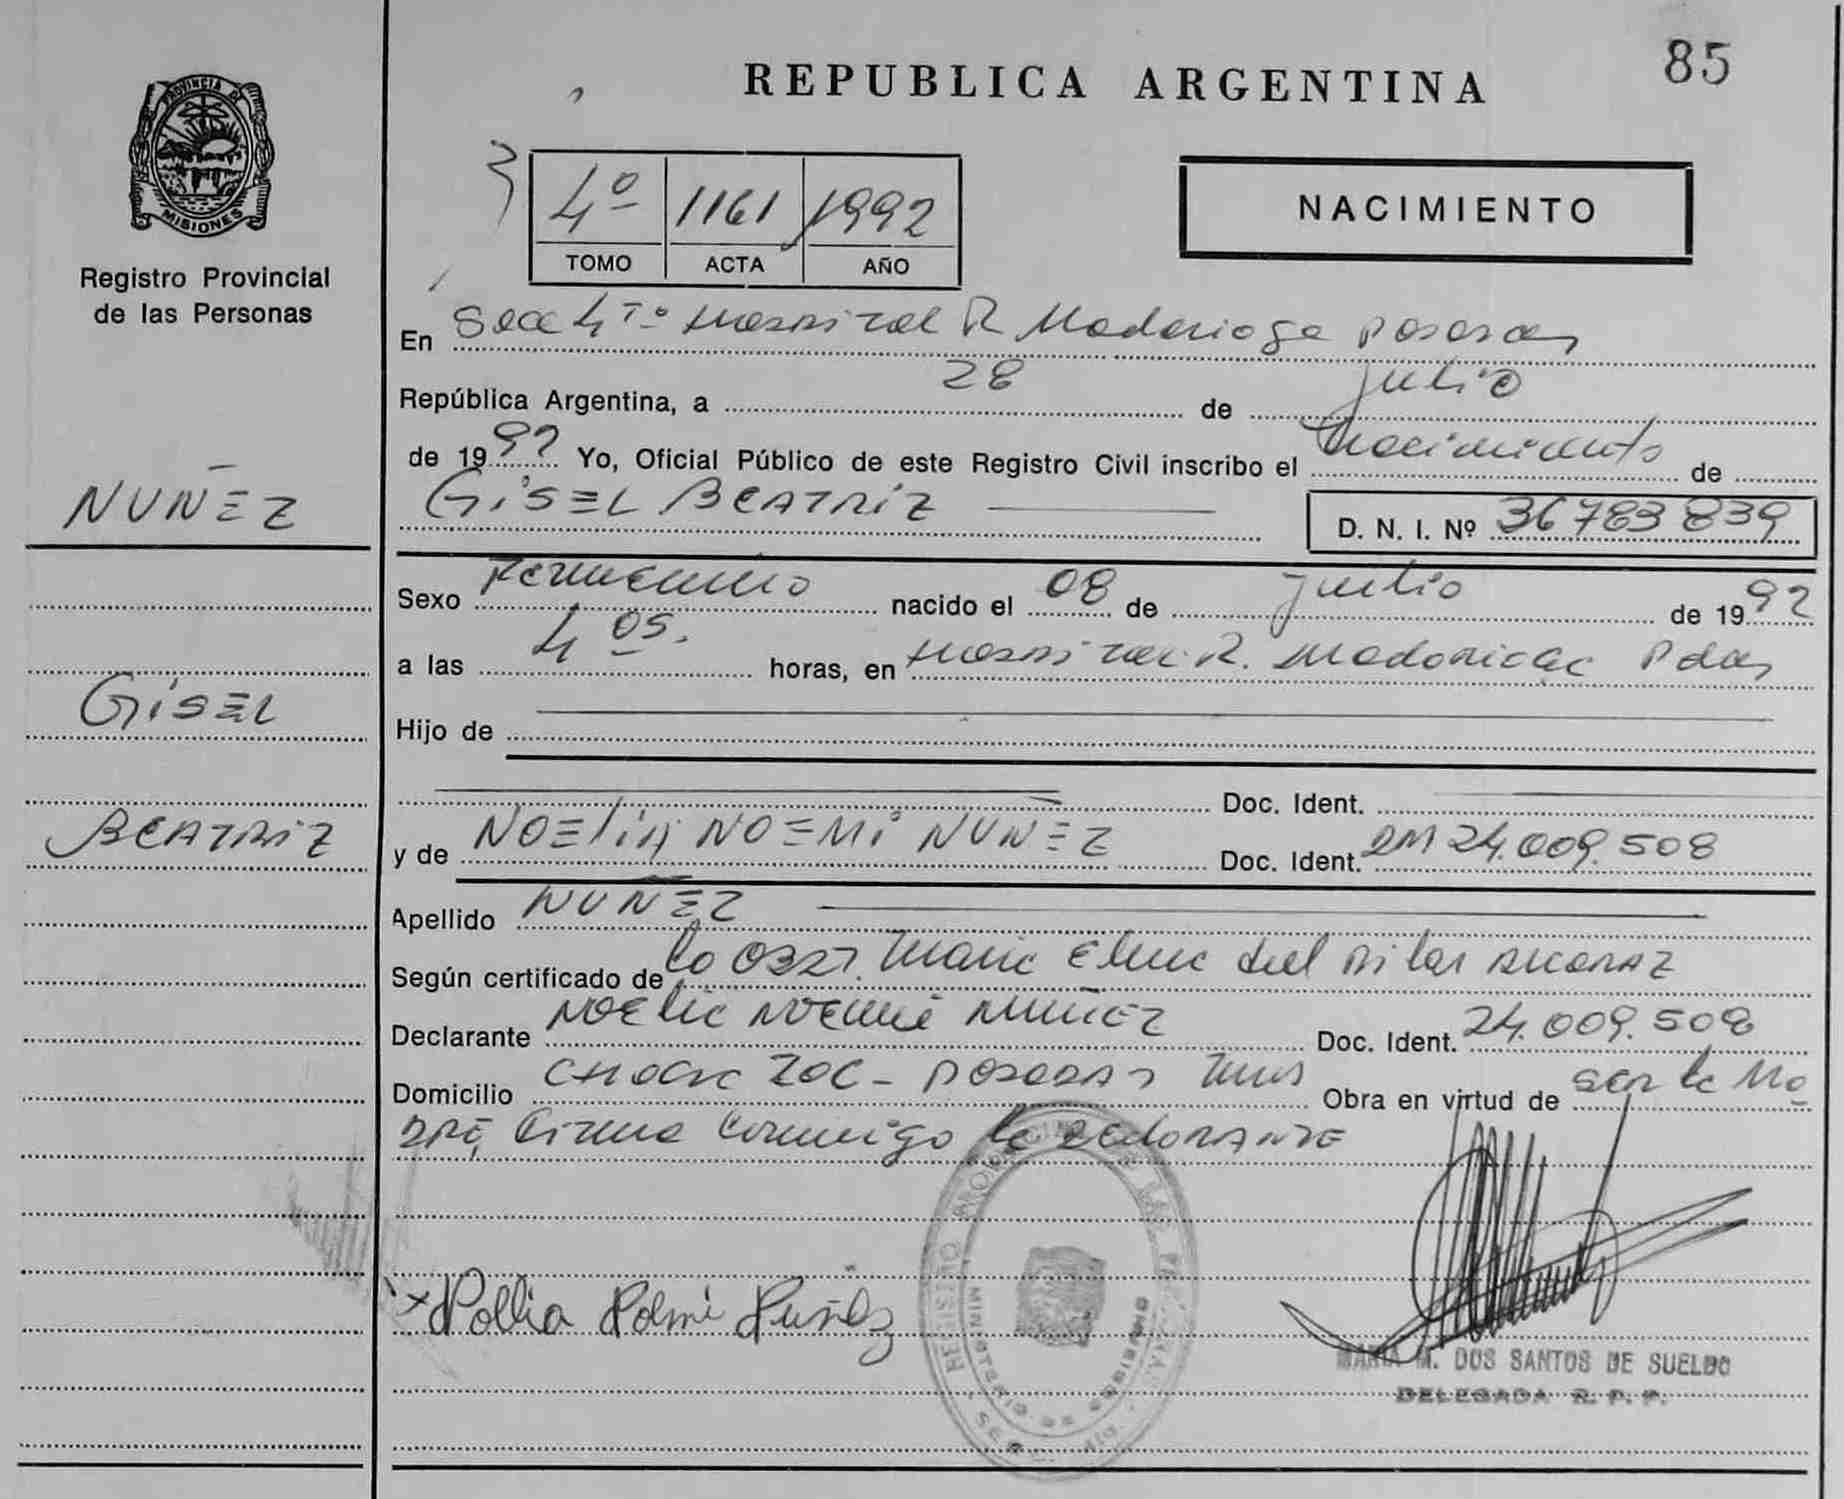 85
REPUBLICA ARGENTINA
PROVINCIA DE
MISIONES
Registro Provincial
de las Personas
4º 1161 1992
TOMO ACTA AÑO
NACIMIENTO
En Secc 4Tº Hospital R Madariaga Posadas
República Argentina, a 28 de julio
de 1992 Yo, Oficial Público de este Registro Civil inscribo el nacimiento de
GISEL BEATRIZ
D. N. I. Nº 36783839
NUÑEZ
GISEL
BEATRIZ
Sexo Femenino nacido el 08 de julio de 1992
a las 4 05. horas, en Hospital R. Madariaga Pdas
Hijo de
Doc. Ident.
y de NOELIA NOEMI NUÑEZ Doc. Ident. DNI 24.009.508
Apellido NUÑEZ
Según certificado de la Obst. Maria Elena del Pilar Alcaraz
Declarante NOELIA NOEMI NUÑEZ Doc. Ident. 24.009.508
Domicilio CHACRA - POSADAS Mnes Obra en virtud de ser la Ma
dre, Firma conmigo la declarante
Noelia Noemi Nuñez
MARIA M. DOS SANTOS DE SUELDO
DELEGADA R. P. P.
REGISTRO PROVINCIAL DE LAS PERSONAS
MINISTERIO DE GOBIERNO